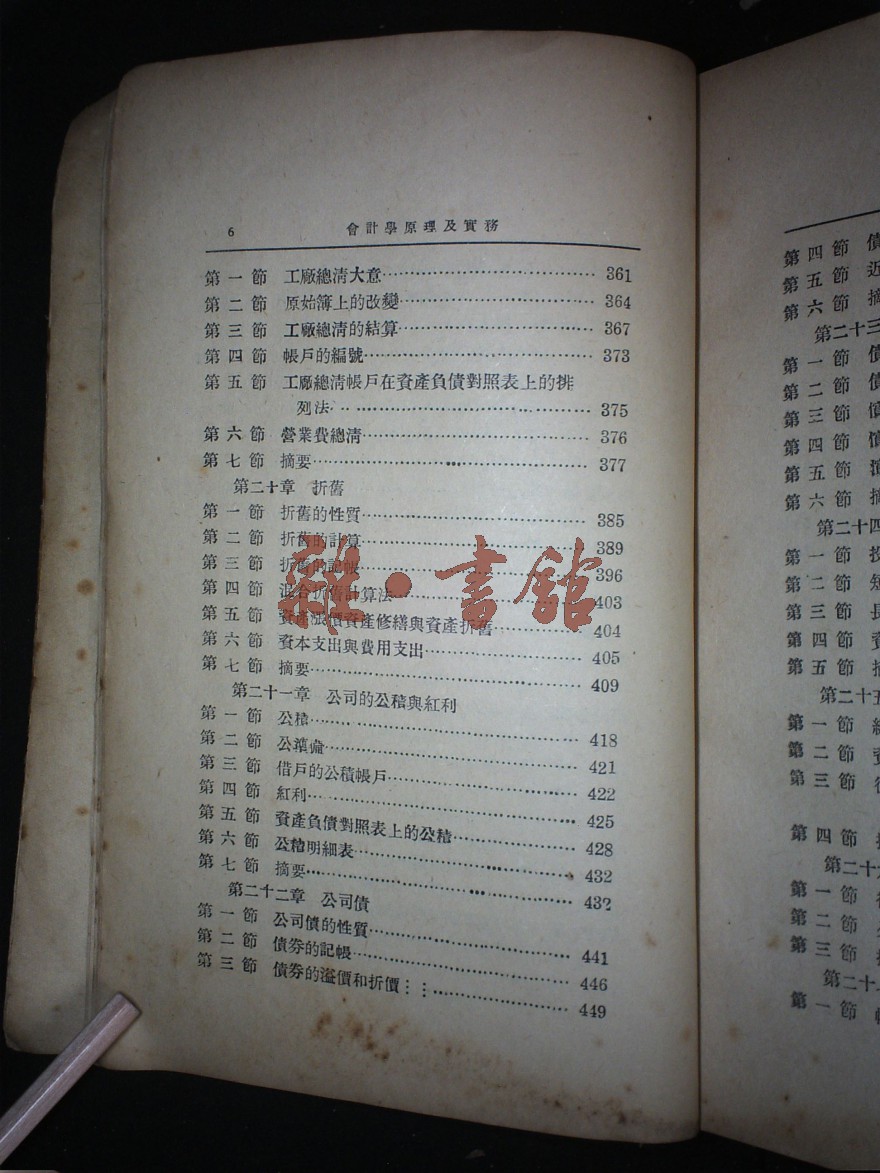 6 會計學原理及實務
第一節 工厰總淸大意 361
第二節 原始簿上的改變 364
第三節 工厰總淸的結算 367
第四節 帳戶的編號 373
第五節 工厰總淸帳戶在資產負債對照表上的排
列法 375
第六節 營業費總淸 376
第七節 摘要 377
第二十章 折舊
第一節 折舊的性質 385
第二節 折舊的計算 389
第三節 折舊的記帳 396
第四節 混合折舊計算法 403
第五節 資產漲價資產修繕與資產折舊 404
第六節 資本支出與費用支出 405
第七節 摘要 409
第二十一章 公司的公積與紅利
第一節 公積 418
第二節 公積 421
第三節 借戶的公積帳戶 422
第四節 紅利 425
第五節 資產負債對照表上的公積 428
第六節 公積明細表 432
第七節 摘要 432
第二十二章 公司債
第一節 公司債的性質 441
第二節 債券的記帳 446
第三節 債券的溢價和折價 449
雜·書館
第四節 債
第五節 近
第六節 摘
第二十三
第一節 債
第二節 債
第三節 債
第四節 債
第五節
第六節 摘
第二十四
第一節 投
第二節 短
第三節 長
第四節 資
第五節 摘
第二十五
第一節
第二節 資
第三節
第四節
第二十
第一節
第二節
第三節
第二十
第一節